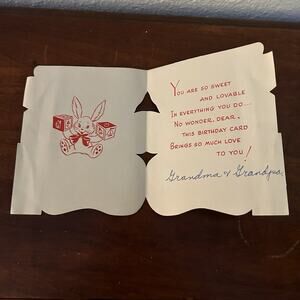 You are so sweet
and lovable
In everything you do...
No wonder, dear,
this birthday card
Brings so much love
to you!
Grandma & Grandpa